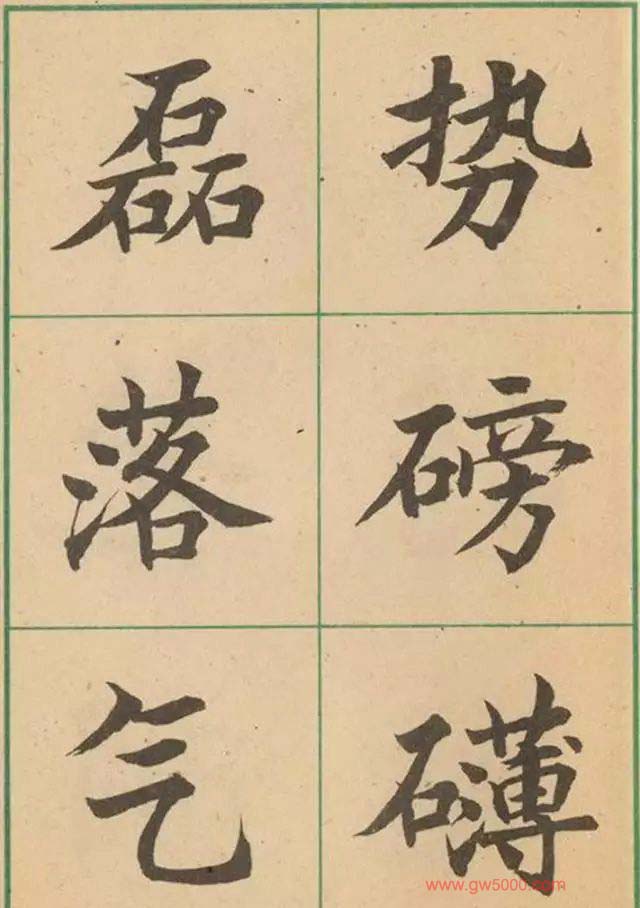 势磅礴
磊落气
www.gw5000.com